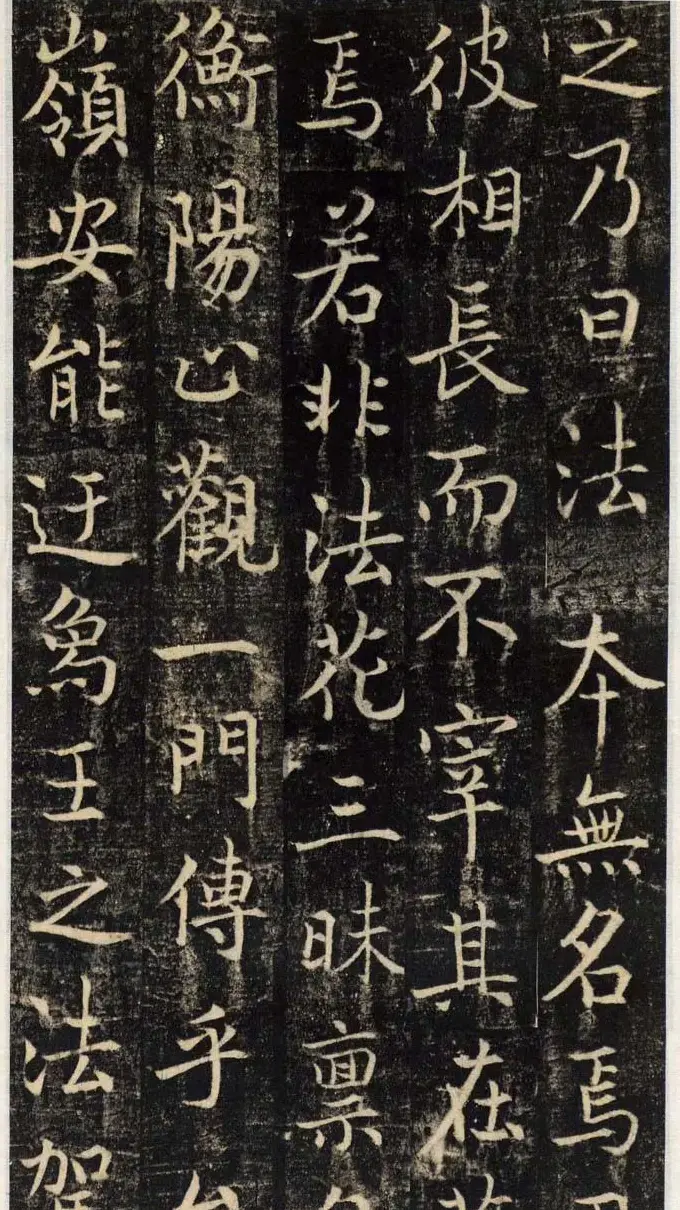 之乃曰法 本無名焉
彼相長而不宰其在
焉若非法花三昧禀
衡陽止觀一門傳乎
嶺安能迂象王之法